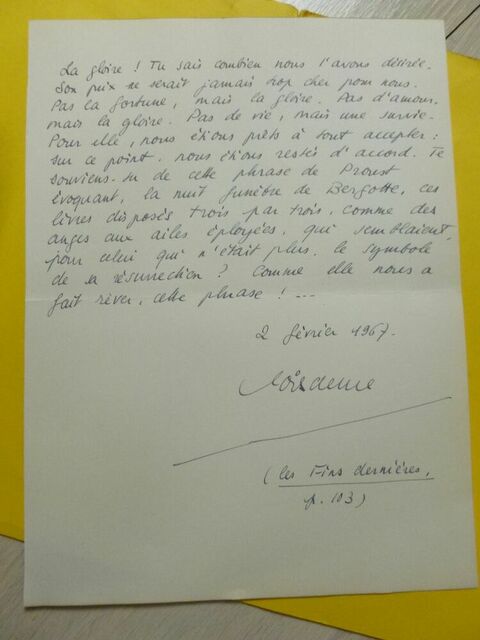 La gloire ! Tu sais combien nous l'avons désirée.
Son prix ne serait jamais trop cher pour nous.
Pas la fortune, mais la gloire. Pas d'amour,
mais la gloire. Pas de vie, mais une survie.
Pour elle, nous étions prêts à tout accepter :
sur ce point, nous étions restés d'accord. Te
souviens-tu de cette phrase de Proust
évoquant, la nuit funèbre de Bergotte, ces
livres disposés trois par trois, comme des
anges aux ailes éployées, qui semblaient,
pour celui qui n'était plus, le symbole
de sa résurrection ? Comme elle nous a
fait rêver, cette phrase ! ---
2 février 1967.
(Les Fins dernières,
p. 103)